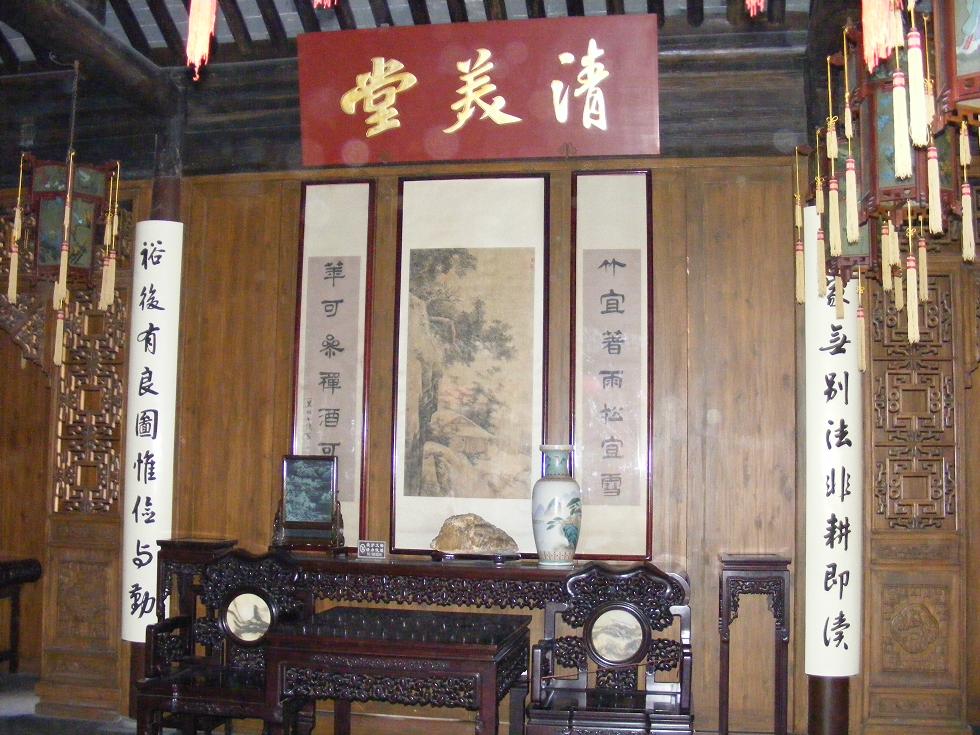 清美堂
無別法非耕即讀
竹宜著雨松宜雪
華可參禪酒可
裕後有良圖惟儉与勤